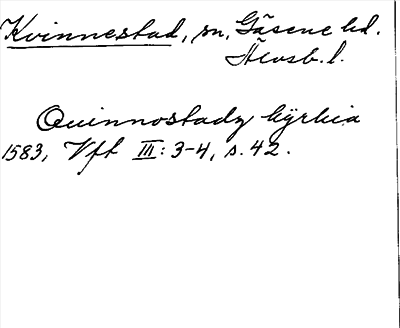 Kvinnestad, sn, Gäsene hd.
Älvsb. l.
Quinnostadz kÿrkia
1583, Vft III: 3-4, s. 42.